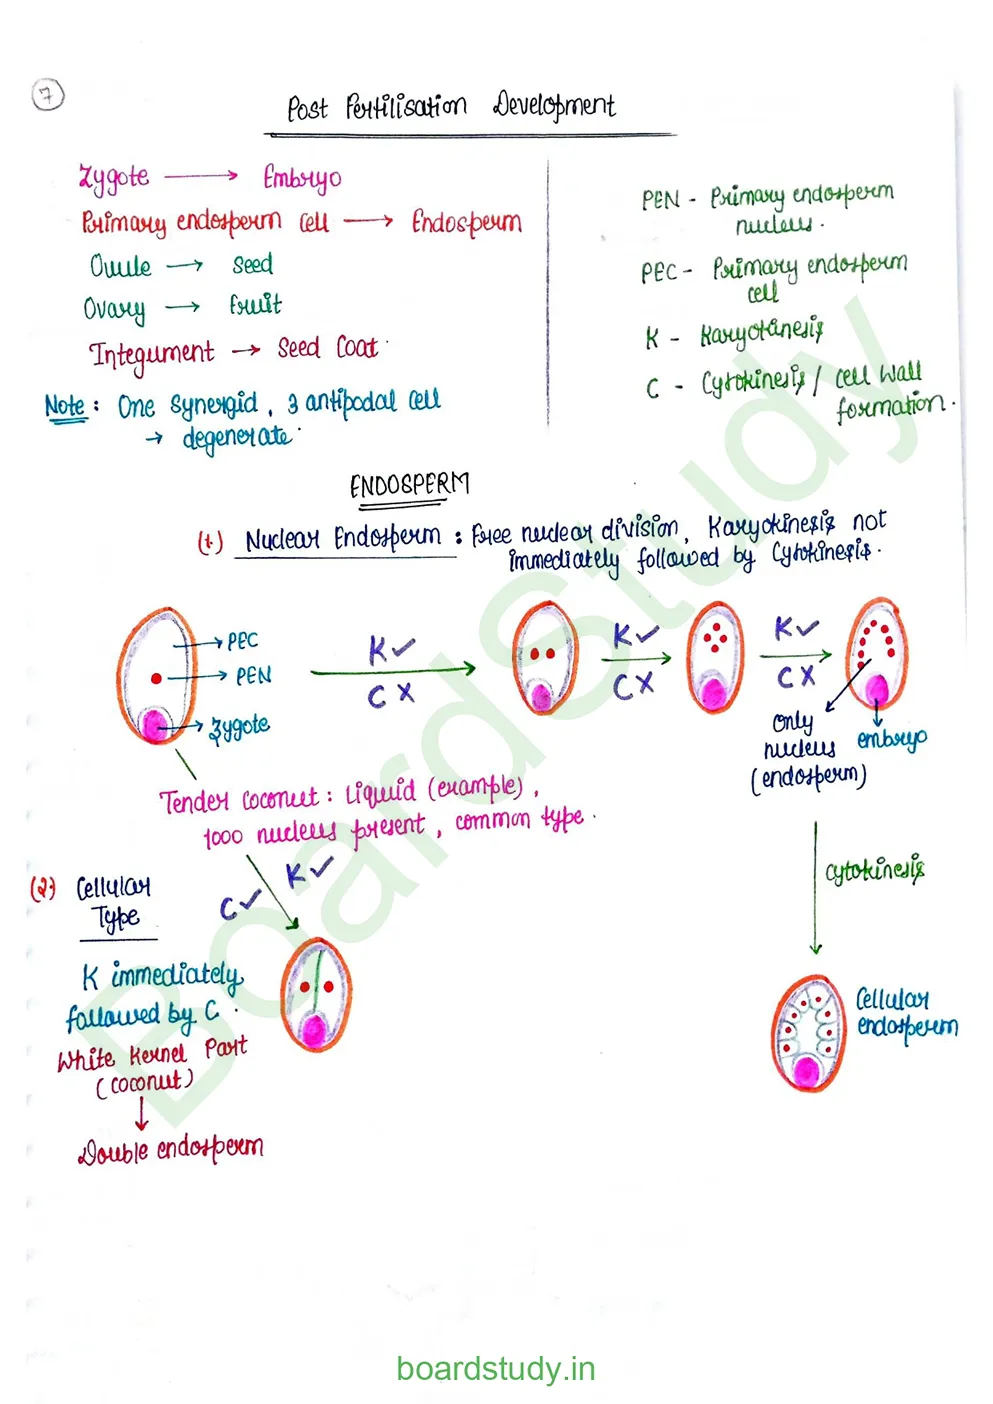 7
Post Fertilisation Development
Zygote → Embryo
Primary endosperm cell → Endosperm
Ovule → Seed
Ovary → fruit
Integument → Seed Coat
Note : One Synergid, 3 antipodal cell
→ degenerate
PEN - Primary endosperm
nucleus.
PEC - Primary endosperm
cell
K - Karyokinesis
C - Cytokinesis / Cell Wall
formation.
ENDOSPERM
(1) Nuclear Endosperm : Free nuclear division, Karyokinesis not
immediately followed by Cytokinesis.
→ PEC
→ PEN
→ Zygote
K ✓
C X
K ✓
C X
K ✓
C X
only
nucleus
(endosperm)
embryo
Tender Coconut : Liquid (example),
1000 nucleus present, common type.
K ✓
C ✓
cytokinesis
(2) Cellular
Type
K immediately
followed by C.
White Kernel Part
(coconut)
↓
Double endosperm
Cellular
endosperm
BoardStudy
boardstudy.in